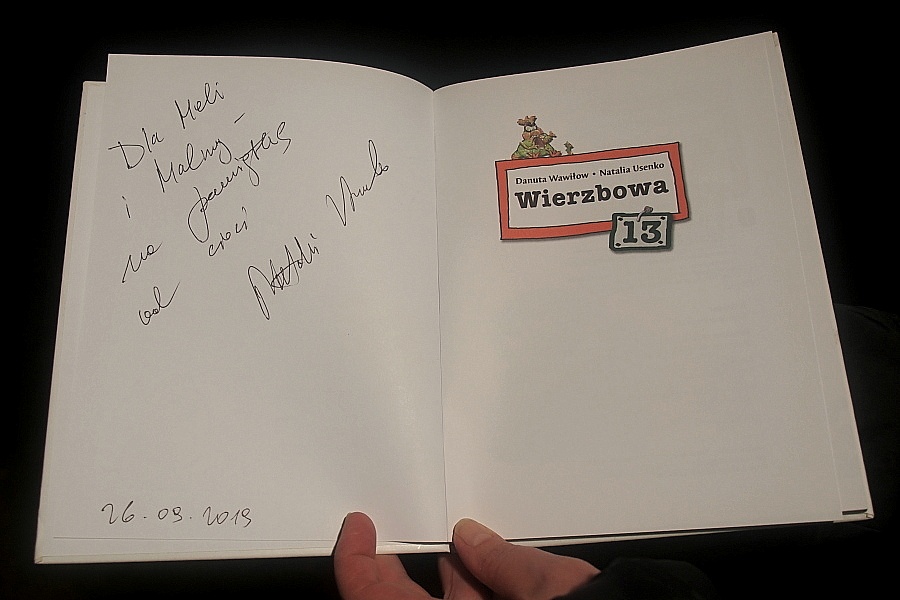 Dla Meli
i Malwy -
na pamiątkę
od cioci
Natalii Usenko
26.09.2019
Danuta Wawiłow • Natalia Usenko
Wierzbowa
13